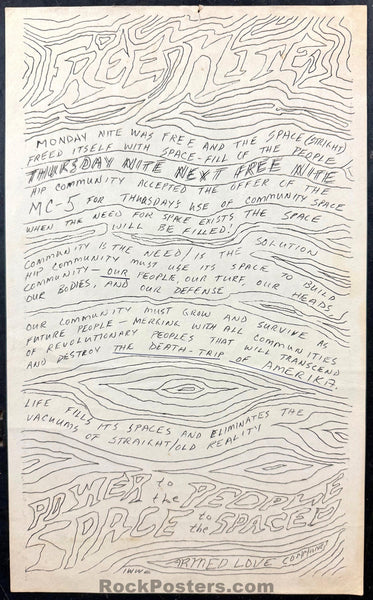 FREE NITE
MONDAY NITE WAS FREE AND THE SPACE (STRIGHT)
FREED ITSELF WITH SPACE-FILL OF THE PEOPLE
THURSDAY NITE NEXT FREE NITE
HIP COMMUNITY ACCEPTED THE OFFER OF THE
MC-5 FOR THURSDAYS USE OF COMMUNITY SPACE
WHEN THE NEED FOR SPACE EXISTS THE SPACE
WILL BE FILLED!
COMMUNITY IS THE NEED / IS THE SOLUTION
HIP COMMUNITY MUST USE ITS SPACE TO BUILD
COMMUNITY — OUR PEOPLE, OUR TURF, OUR HEADS,
OUR BODIES, AND OUR DEFENSE
OUR COMMUNITY MUST GROW AND SURVIVE AS
FUTURE PEOPLE - MERGING WITH ALL COMMUNITIES
OF REVOLUTIONARY PEOPLES THAT WILL TRANSCEND
AND DESTROY THE DEATH-TRIP OF AMERIKA.
LIFE FILLS ITS SPACES AND ELIMINATES THE
VACUUMS OF STRAIGHT/OLD REALITY
POWER to the PEOPLE
SPACE to the SPACED
ARMED LOVE
RockPosters.com